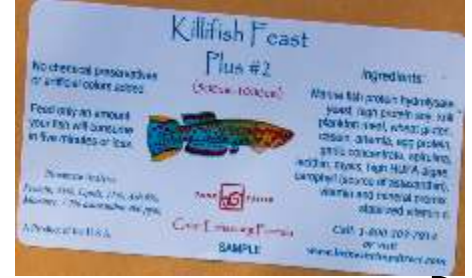 Killifish Feast
Plus #2
No chemical preservatives
or artificial colors added.
Feed only an amount
your fish will consume
in five minutes or less.
A Product of the U.S.A.
Color Enhancing Formula
SAMPLE
Ingredients:
Marine fish protein hydrolysate,
yeast, high protein soy, krill,
plankton meal, wheat gluten,
casein, artemia, egg protein,
garlic concentrate, spirulina,
mysis, high HUFA algae,
(source of astaxanthin),
vitamin and mineral premix,
stabilized vitamin c.
Call: 1-800-303-7914
or visit